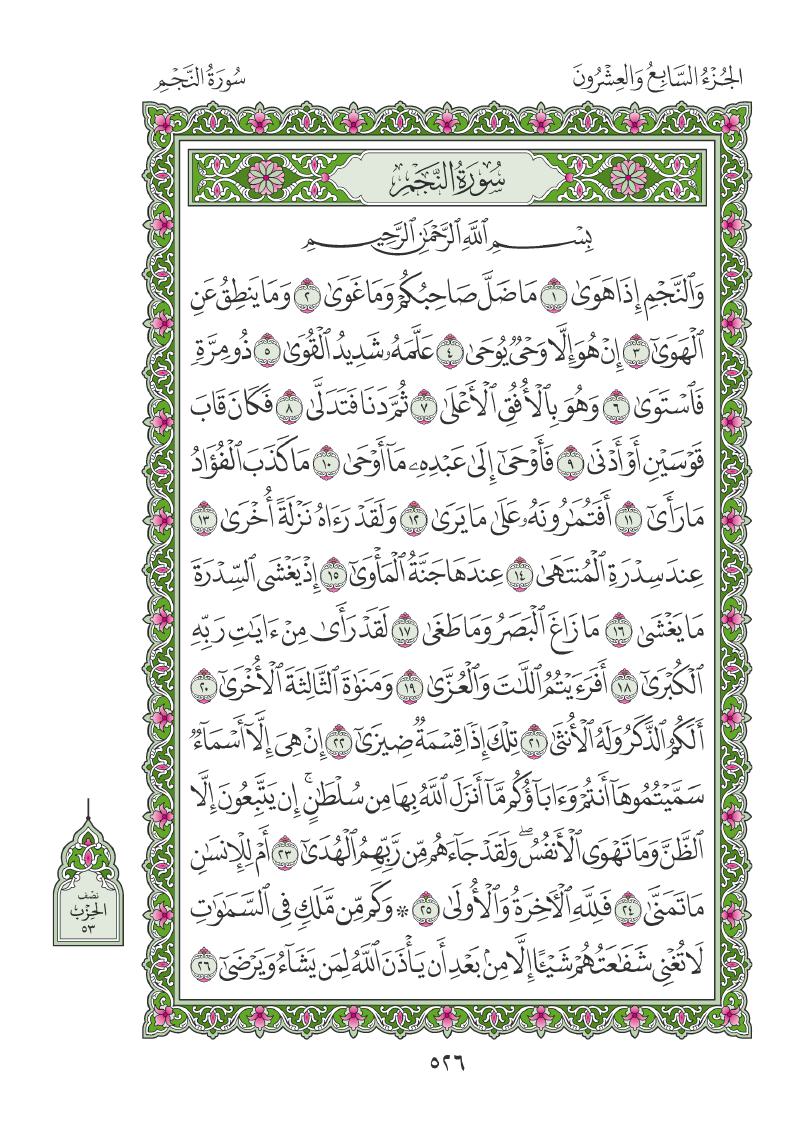 الجُزْءُ السَّابِعُ وَالعِشْرُونَ
سُورَةُ النَّجْمِ
سُورَةُ النَّجْمِ
بِسْمِ ٱللَّهِ ٱلرَّحْمَٰنِ ٱلرَّحِيمِ
وَٱلنَّجْمِ إِذَا هَوَىٰ ١ مَا ضَلَّ صَاحِبُكُمْ وَمَا غَوَىٰ ٢ وَمَا يَنطِقُ عَنِ
ٱلْهَوَىٰٓ ٣ إِنْ هُوَ إِلَّا وَحْىٌ يُوحَىٰ ٤ عَلَّمَهُۥ شَدِيدُ ٱلْقُوَىٰ ٥ ذُو مِرَّةٍ
فَٱسْتَوَىٰ ٦ وَهُوَ بِٱلْأُفُقِ ٱلْأَعْلَىٰ ٧ ثُمَّ دَنَا فَتَدَلَّىٰ ٨ فَكَانَ قَابَ
قَوْسَيْنِ أَوْ أَدْنَىٰ ٩ فَأَوْحَىٰٓ إِلَىٰ عَبْدِهِۦ مَآ أَوْحَىٰ ١٠ مَا كَذَبَ ٱلْفُؤَادُ
مَا رَأَىٰٓ ١١ أَفَتُمَٰرُونَهُۥ عَلَىٰ مَا يَرَىٰ ١٢ وَلَقَدْ رَءَاهُ نَزْلَةً أُخْرَىٰ ١٣
عِندَ سِدْرَةِ ٱلْمُنتَهَىٰ ١٤ عِندَهَا جَنَّةُ ٱلْمَأْوَىٰٓ ١٥ إِذْ يَغْشَى ٱلسِّدْرَةَ
مَا يَغْشَىٰ ١٦ مَا زَاغَ ٱلْبَصَرُ وَمَا طَغَىٰ ١٧ لَقَدْ رَأَىٰ مِنْ ءَايَٰتِ رَبِّهِ
ٱلْكُبْرَىٰٓ ١٨ أَفَرَءَيْتُمُ ٱللَّٰتَ وَٱلْعُزَّىٰ ١٩ وَمَنَوٰةَ ٱلثَّالِثَةَ ٱلْأُخْرَىٰٓ ٢٠
أَلَكُمُ ٱلذَّكَرُ وَلَهُ ٱلْأُنثَىٰ ٢١ تِلْكَ إِذًا قِسْمَةٌ ضِيزَىٰٓ ٢٢ إِنْ هِىَ إِلَّآ أَسْمَآءٌ
سَمَّيْتُمُوهَآ أَنتُمْ وَءَابَآؤُكُم مَّآ أَنزَلَ ٱللَّهُ بِهَا مِن سُلْطَٰنٍ ۚ إِن يَتَّبِعُونَ إِلَّا
ٱلظَّنَّ وَمَا تَهْوَى ٱلْأَنفُسُ ۖ وَلَقَدْ جَآءَهُم مِّن رَّبِّهِمُ ٱلْهُدَىٰٓ ٢٣ أَمْ لِلْإِنسَٰنِ
مَا تَمَنَّىٰ ٢٤ فَلِلَّهِ ٱلْءَاخِرَةُ وَٱلْأُولَىٰ ٢٥ ۞ وَكَم مِّن مَّلَكٍ فِى ٱلسَّمَٰوَٰتِ
لَا تُغْنِى شَفَٰعَتُهُمْ شَيْـًٔا إِلَّا مِنۢ بَعْدِ أَن يَأْذَنَ ٱللَّهُ لِمَن يَشَآءُ وَيَرْضَىٰٓ ٢٦
نصف
الحزب
٥٣
٥٢٦